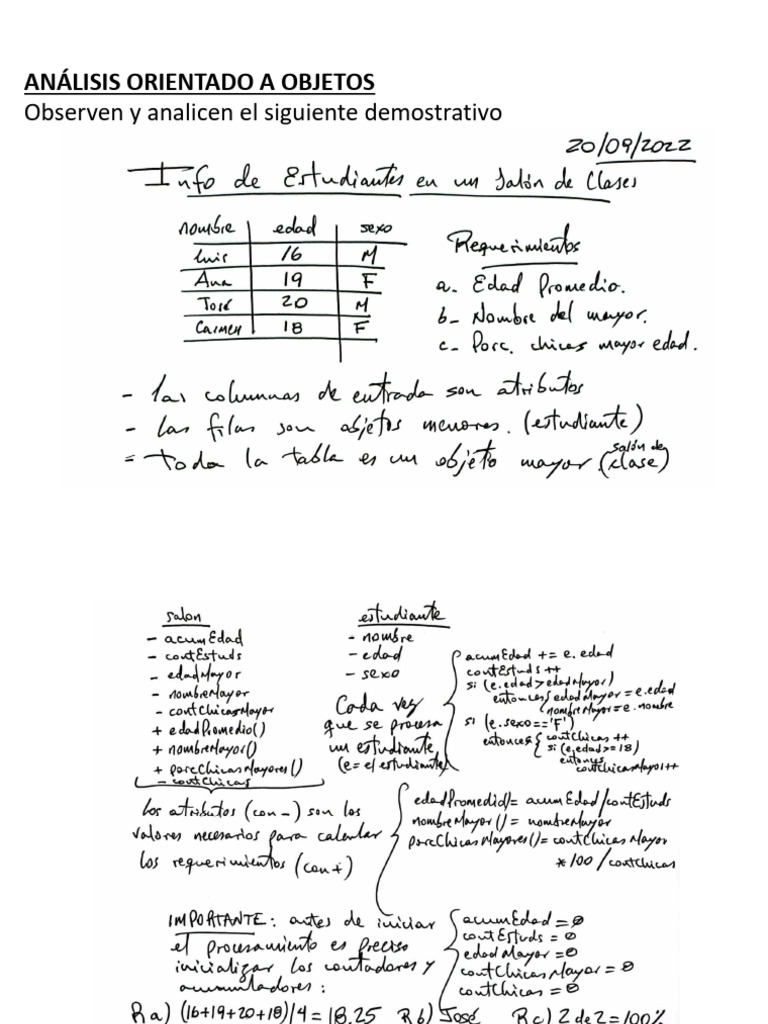 ANÁLISIS ORIENTADO A OBJETOS
Observen y analicen el siguiente demostrativo
20/09/2022
Info de Estudiantes en un Salón de Clases
nombre edad sexo
Luis 16 M
Ana 19 F
José 20 M
Carmen 18 F
Requerimientos
a. Edad Promedio.
b- Nombre del mayor.
c- Porc. chicas mayor edad.
- las columnas de entrada son atributos
- las filas son objetos menores. (estudiante)
= toda la tabla es un objeto mayor (salón de clase)
salon
- acumEdad
- contEstuds
- edadMayor
- nombreMayor
- contChicasMayor
+ edadPromedio()
+ nombreMayor()
+ porcChicasMayores()
- contChicas
estudiante
- nombre
- edad
- sexo
Cada vez
que se procesa
un estudiante
(e = el estudiante)
acumEdad += e.edad
contEstuds ++
si (e.edad > edadMayor)
entonces { edadMayor = e.edad
nombreMayor = e.nombre
si (e.sexo == 'F')
entonces { contChicas ++
si (e.edad >= 18)
entonces
contChicasMayor ++
Los atributos (con -) son los
valores necesarios para calcular
los requerimientos (con +)
edadPromedio() = acumEdad/contEstuds
nombreMayor() = nombreMayor
porcChicasMayores() = contChicasMayor
* 100 / contChicas
IMPORTANTE: antes de iniciar
el procesamiento es preciso
inicializar los contadores y
acumuladores:
acumEdad = 0
contEstuds = 0
edadMayor = 0
contChicasMayor = 0
contChicas = 0
Ra) (16+19+20+18)/4 = 18.25 Rb) José Rc) 2 de 2 = 100%